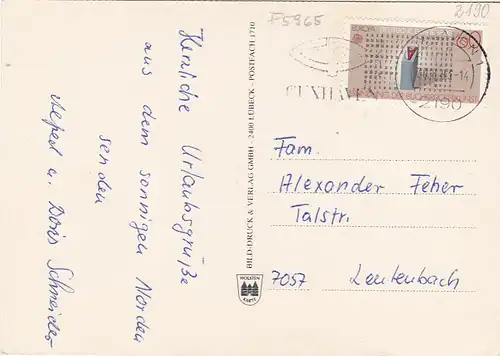 Herzliche Urlaubsgrüße
aus dem sonnigen Norden
senden
u. Doris Schneider
BILD-DRUCK & VERLAG GMBH · 2400 LÜBECK · POSTFACH 1710
HOLSTEN
KARTE
F5965
2190
CUXHAVEN
2190
EUROPA
Fam.
Alexander Feher
Talstr.
7057 Leutenbach